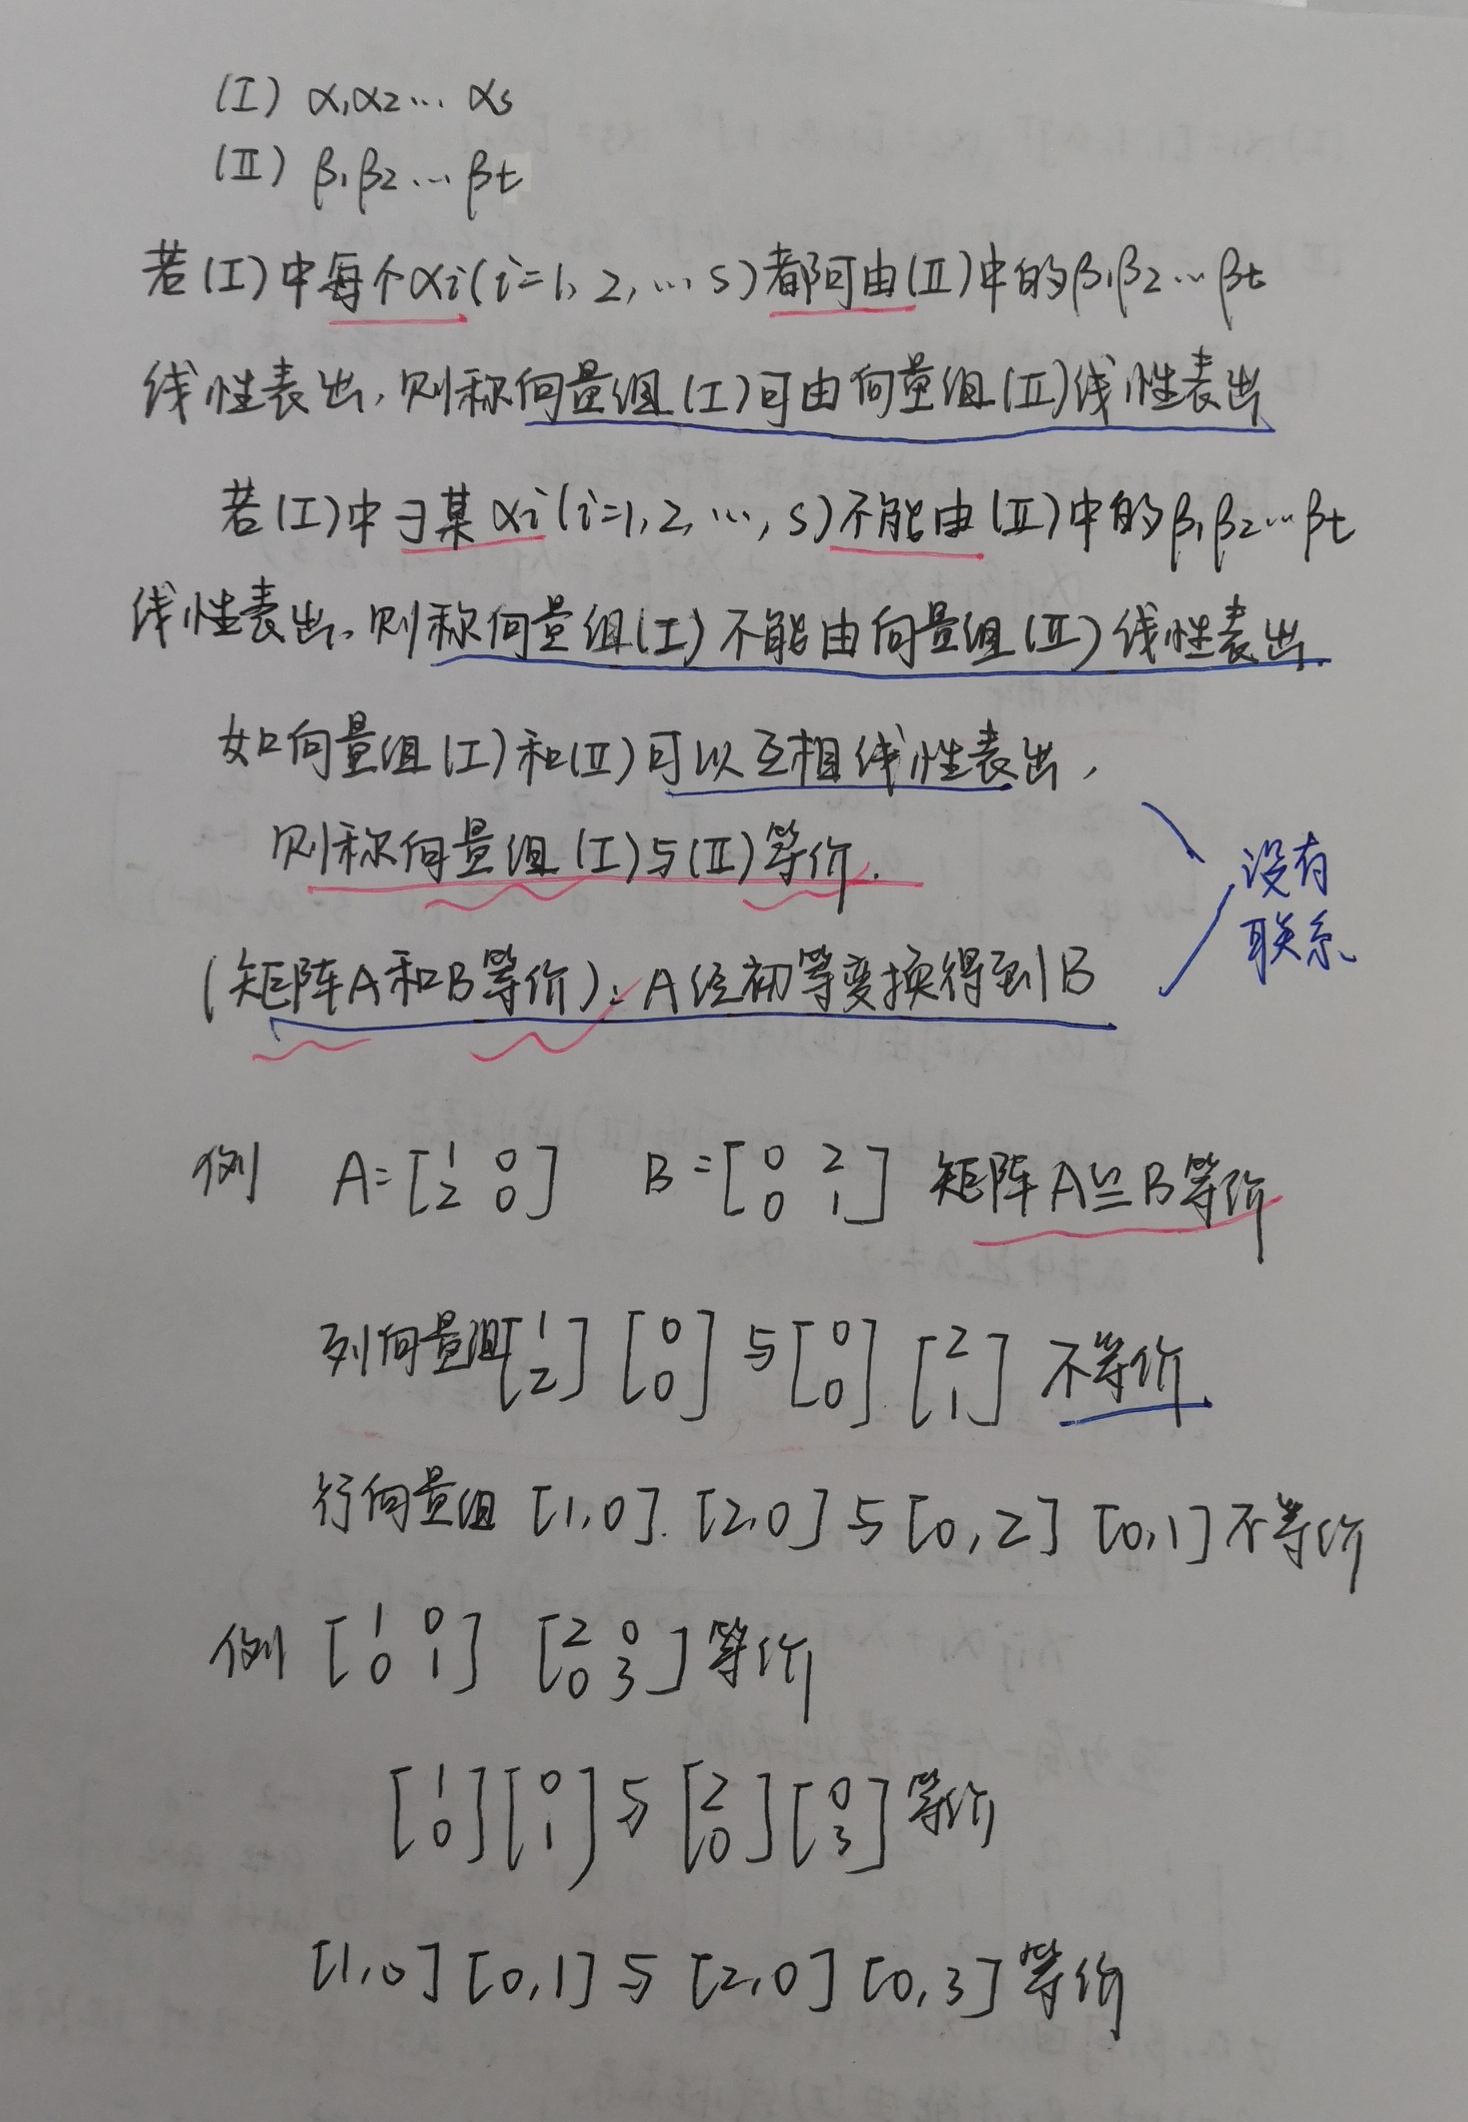 (Ⅰ) α₁α₂… αs
(Ⅱ) β₁β₂… βt
若(Ⅰ)中每个αi(i=1, 2, … s)都可由(Ⅱ)中的β₁β₂…βt
线性表出,则称向量组(Ⅰ)可由向量组(Ⅱ)线性表出
若(Ⅰ)中ョ某αi(i=1, 2, …, s)不能由(Ⅱ)中的β₁β₂…βt
线性表出,则称向量组(Ⅰ)不能由向量组(Ⅱ)线性表出.
如向量组(Ⅰ)和(Ⅱ)可以互相线性表出,
则称向量组(Ⅰ)与(Ⅱ)等价.
没有
联系
(矩阵A和B等价): A经初等变换得到B
例 A=[1 0; 2 0] B=[0 2; 0 1] 矩阵A≌B等价
列向量组[1; 2] [0; 0] 与[0; 0] [2; 1] 不等价.
行向量组 [1,0]. [2,0] 与[0, 2] [0,1]不等价
例 [1 0; 0 1] [2 0; 0 3]等价
[1; 0][0; 1]与[2; 0][0; 3]等价
[1,0] [0,1]与[2,0] [0,3]等价